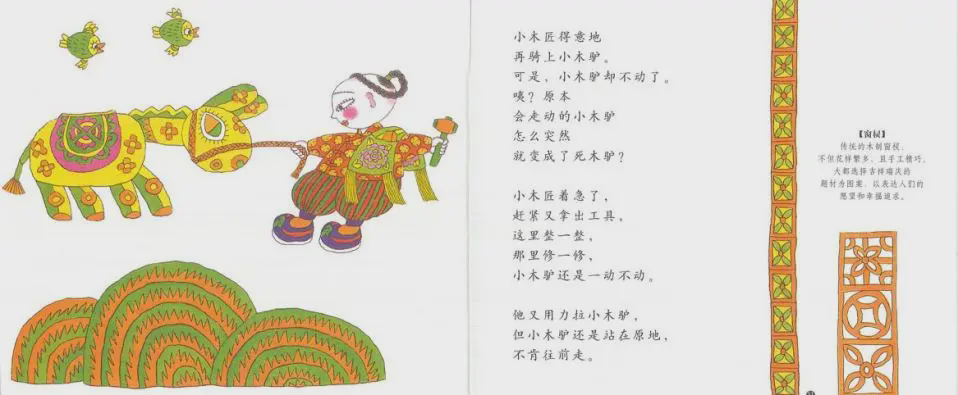 小木匠得意地
再骑上小木驴。
可是，小木驴却不动了。
咦？原本
会走动的小木驴
怎么突然
就变成了死木驴？
小木匠着急了，
赶紧又拿出工具，
这里整一整，
那里修一修，
小木驴还是一动不动。
他又用力拉小木驴，
但小木驴还是站在原地，
不肯往前走。
【窗棂】
传统的木制窗棂，
不但花样繁多，且手工精巧，
大都选择吉祥喜庆的
题材为图案，以表达人们的
愿望和幸福追求。